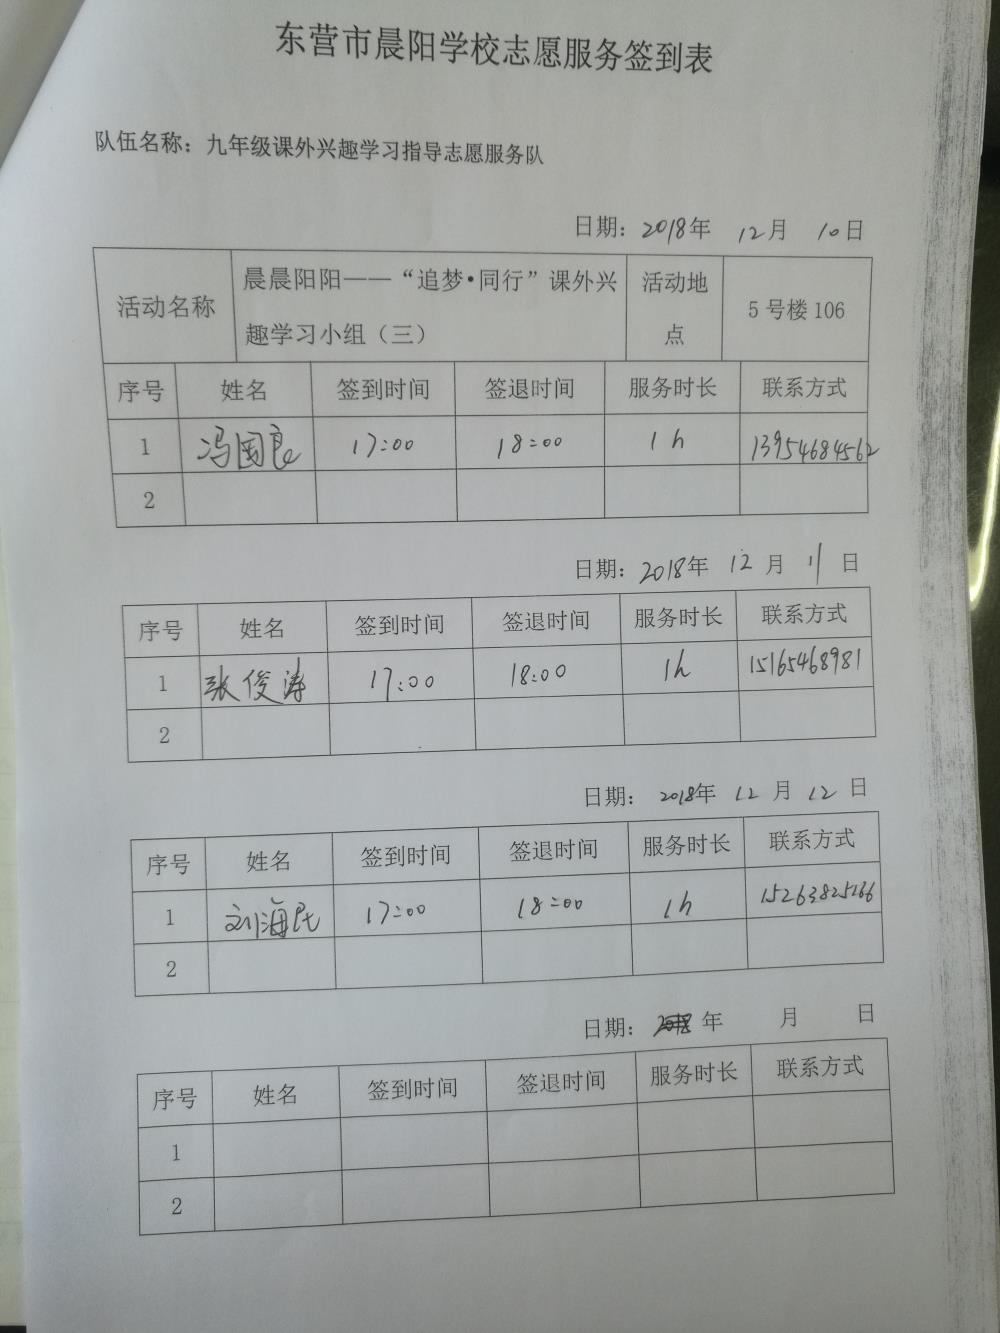 东营市晨阳学校志愿服务签到表
队伍名称：九年级课外兴趣学习指导志愿服务队
日期：2018年 12月 10日
活动名称 晨晨阳阳——“追梦•同行”课外兴趣学习小组（三） 活动地点 5号楼106
序号 姓名 签到时间 签退时间 服务时长 联系方式
1 冯国良 17:00 18:00 1h 13954684562
2
日期：2018年 12月 11日
序号 姓名 签到时间 签退时间 服务时长 联系方式
1 张俊涛 17:00 18:00 1h 15165468981
2
日期：2018年 12月 12日
序号 姓名 签到时间 签退时间 服务时长 联系方式
1 刘海民 17:00 18:00 1h 15263825266
2
日期： 年 月 日
序号 姓名 签到时间 签退时间 服务时长 联系方式
1
2